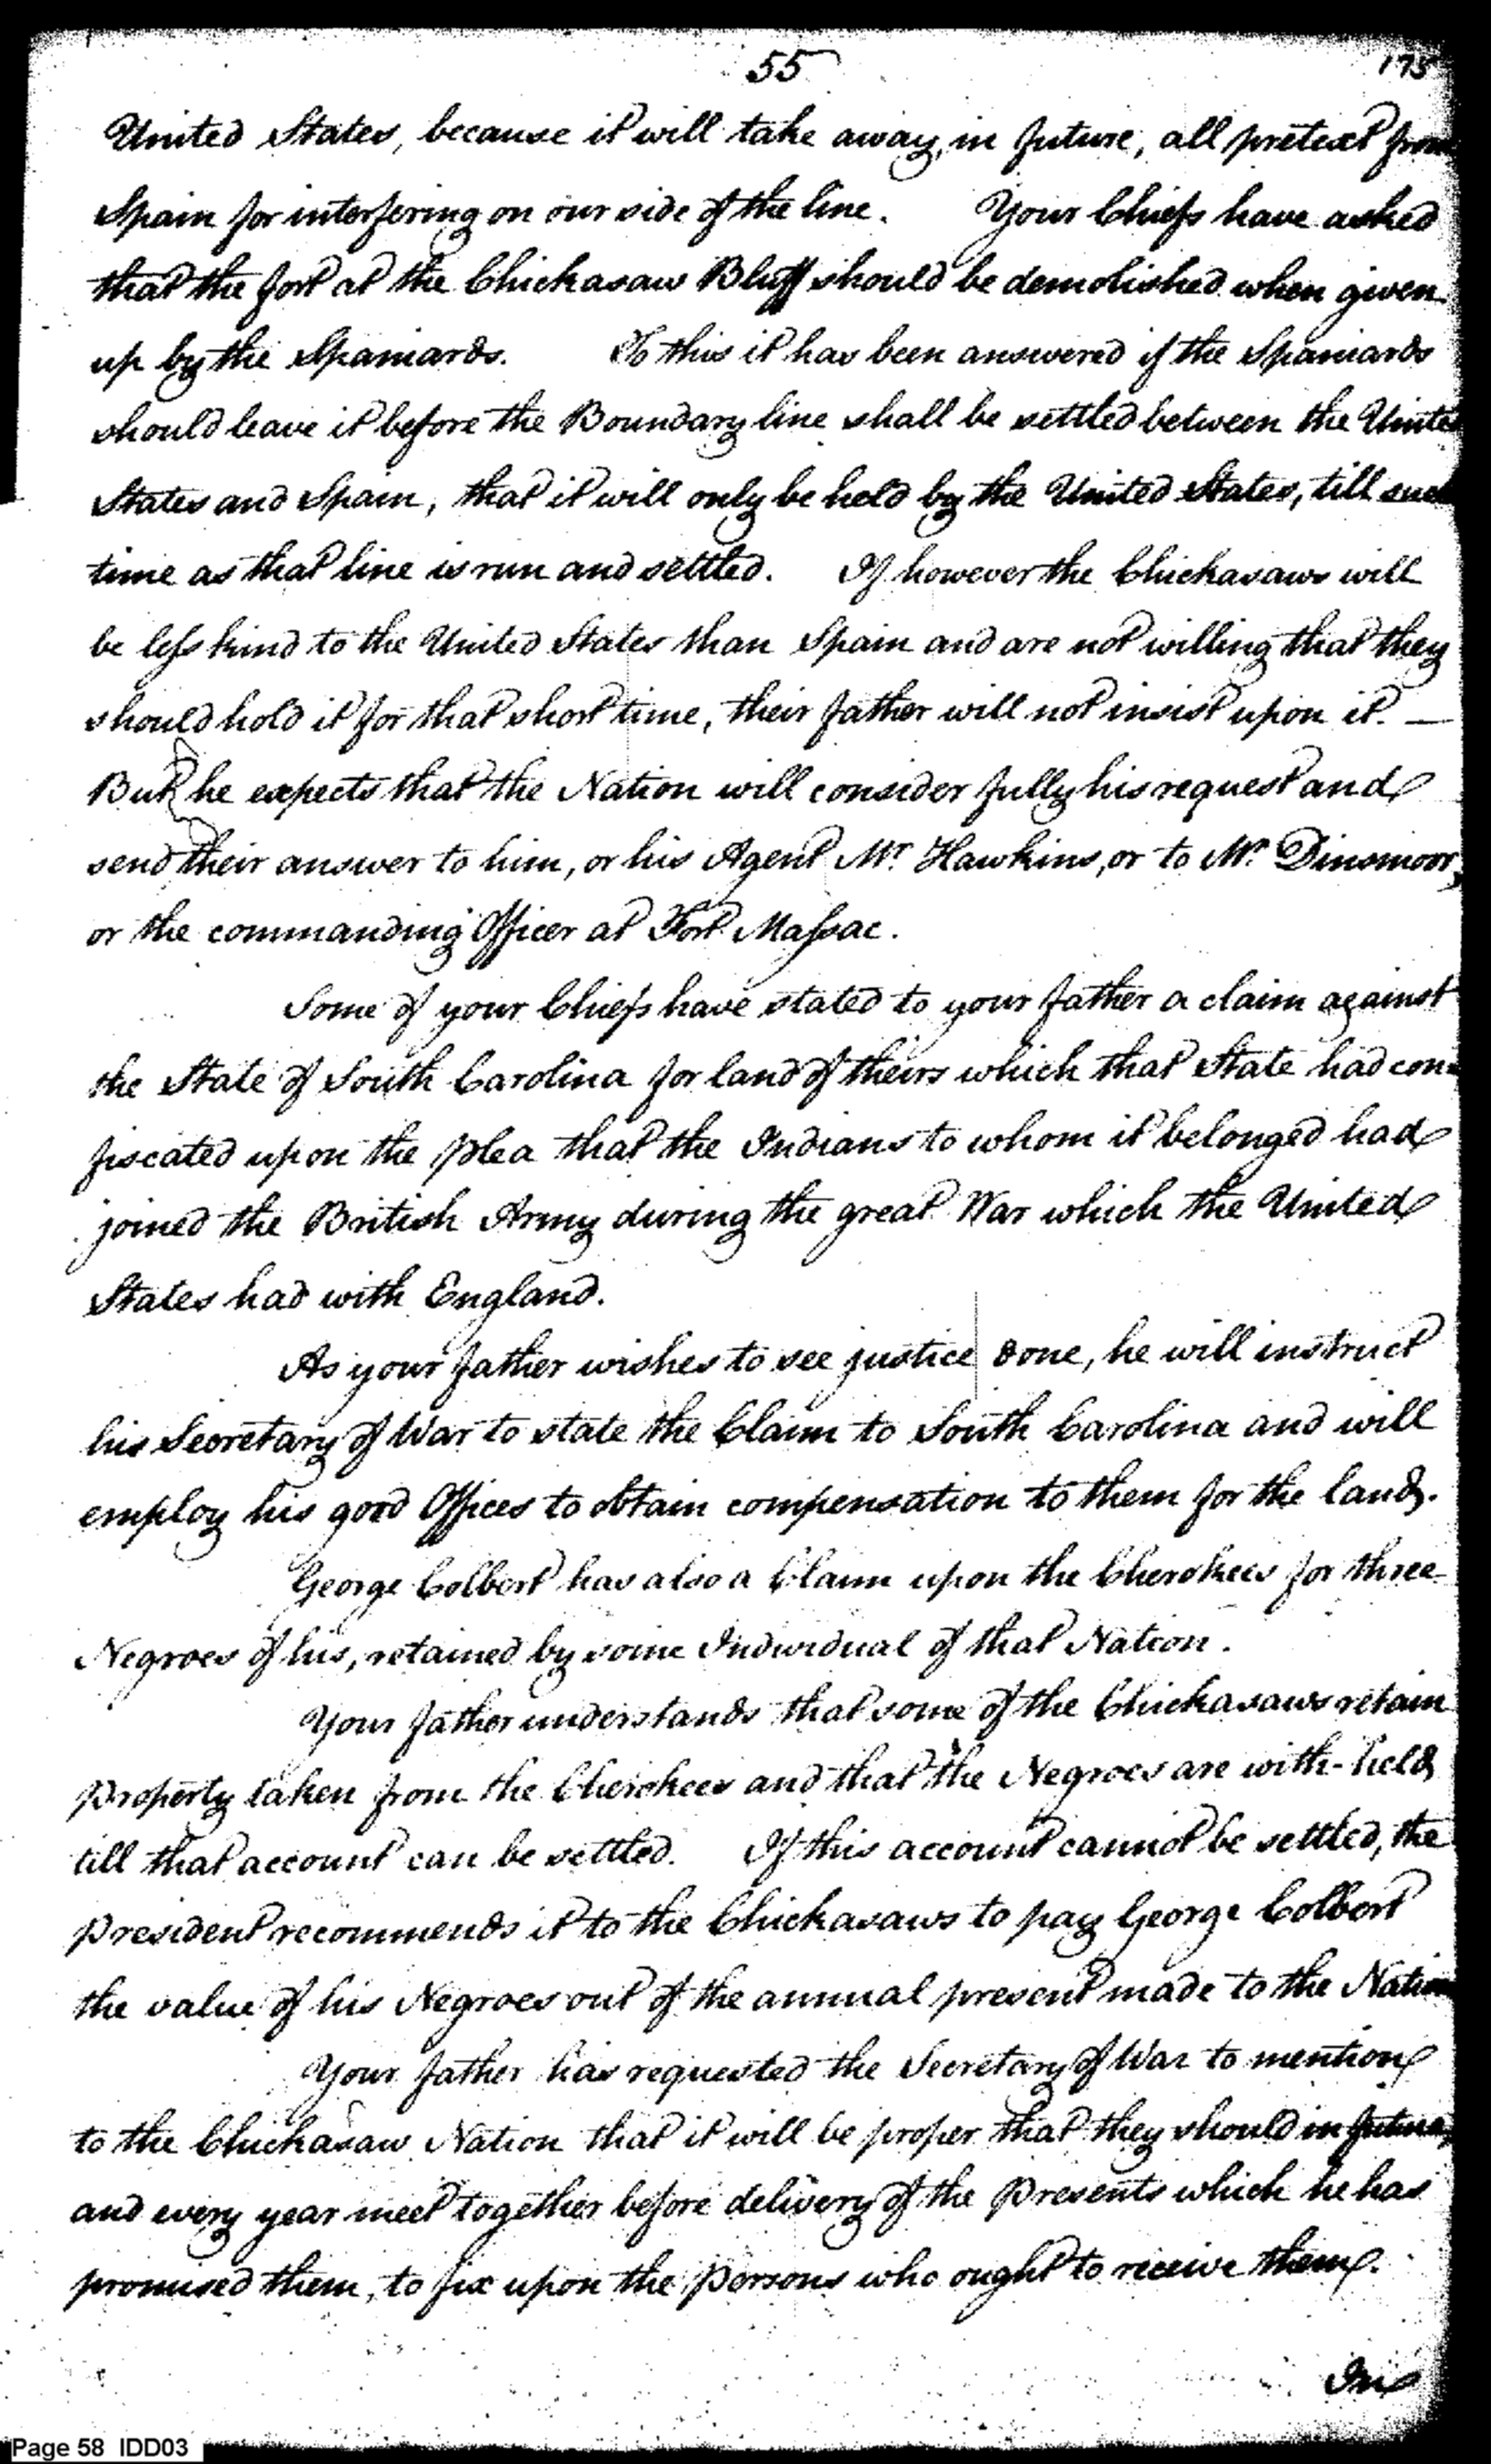 55
175
United States, because it will take away, in future, all pretext from
Spain for interfering on our side of the line. Your Chiefs have asked
that the fort at the Chickasaw Bluff should be demolished when given
up by the Spaniards. To this it has been answered if the Spaniards
should leave it before the Boundary line shall be settled between the United
States and Spain, that it will only be held by the United States, till such
time as that line is run and settled. If however the Chickasaws will
be less kind to the United States than Spain and are not willing that they
should hold it for that short time, their father will not insist upon it. —
But he expects that the Nation will consider fully his request and
send their answer to him, or his Agent Mr. Hawkins, or to Mr. Dinsmoor,
or the commanding Officer at Fort Massac.
Some of your Chiefs have stated to your father a claim against
the State of South Carolina for land of theirs which that State had con=
fiscated upon the plea that the Indians to whom it belonged had
joined the British Army during the great War which the United
States had with England.
As your father wishes to see justice done, he will instruct
his Secretary of War to state the Claim to South Carolina and will
employ his good Offices to obtain compensation to them for the land.
George Colbert has also a Claim upon the Cherokees for three
Negroes of his, retained by some Individual of that Nation.
Your father understands that some of the Chickasaws retain
property taken from the Cherokees and that the Negroes are with-held
till that account can be settled. If this account cannot be settled, the
President recommends it to the Chickasaws to pay George Colbert
the value of his Negroes out of the annual present made to the Nation
Your father has requested the Secretary of War to mention
to the Chickasaw Nation that it will be proper that they should in future,
and every year meet together before delivery of the Presents which he has
promised them, to fix upon the Persons who ought to receive them.
In
Page 58 IDD03